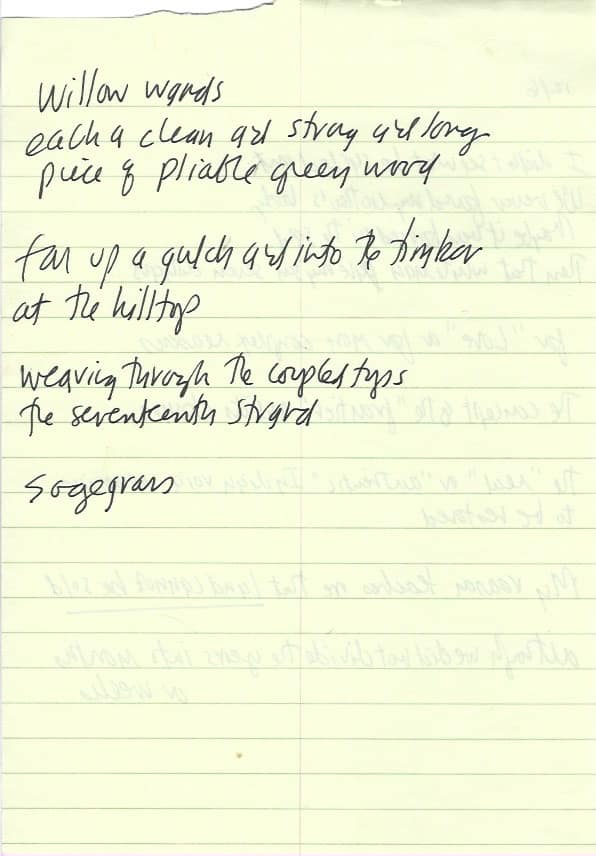 Willow wands
each a clean and strong and long
piece of pliable green wood
far up a gulch and into the timber
at the hilltop
weaving through the coupled tips
the seventeenth strand
sagegrass